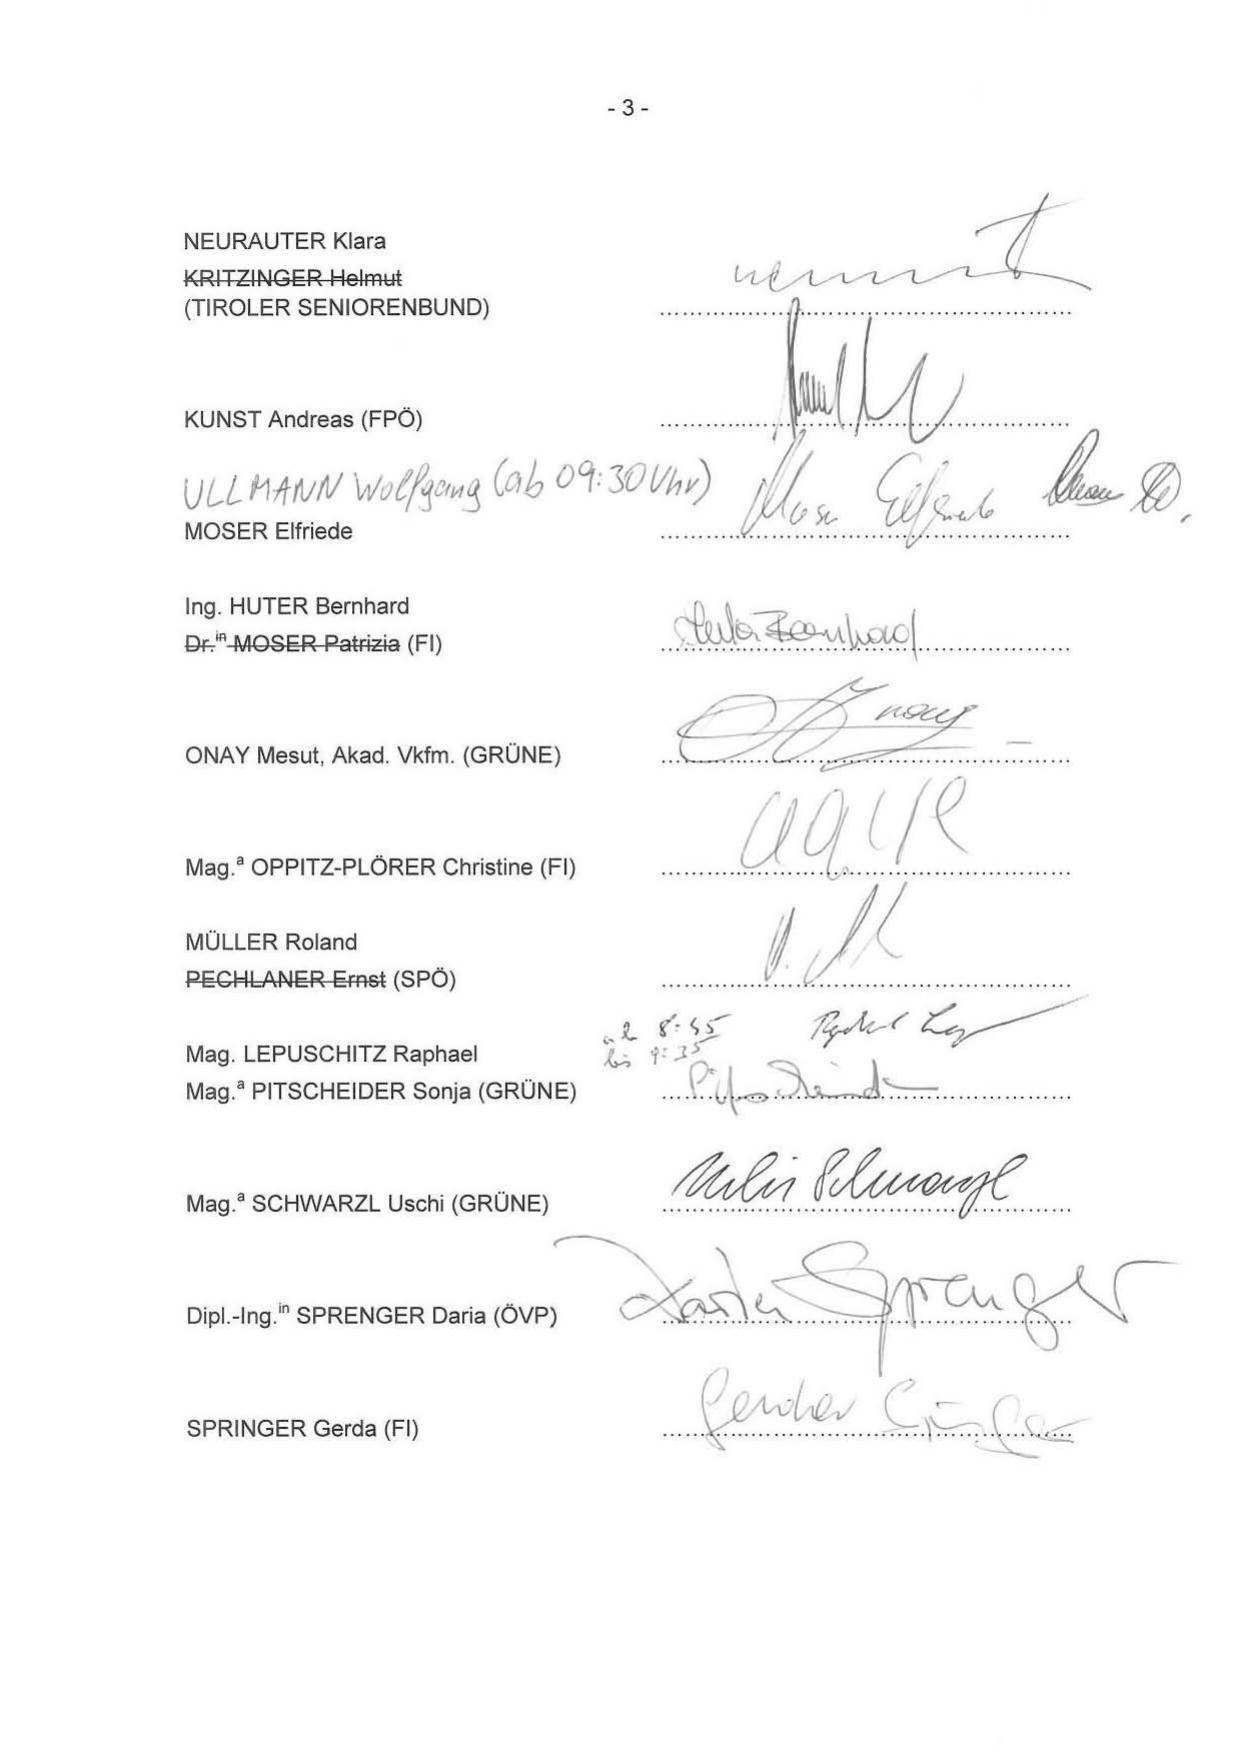 - 3 -
NEURAUTER Klara
KRITZINGER Helmut
(TIROLER SENIORENBUND)
KUNST Andreas (FPÖ)
ULLMANN Wolfgang (ab 09:30 Uhr)
Moser Elfriede
MOSER Elfriede
Ing. HUTER Bernhard
Dr.in MOSER Patrizia (FI)
Huter Bernhard
ONAY Mesut, Akad. Vkfm. (GRÜNE)
Mag.a OPPITZ-PLÖRER Christine (FI)
MÜLLER Roland
PECHLANER Ernst (SPÖ)
ab 8:55
bis 9:35
Mag. LEPUSCHITZ Raphael
Mag.a PITSCHEIDER Sonja (GRÜNE)
Pitscheider
Uschi Schwarzl
Mag.a SCHWARZL Uschi (GRÜNE)
Daria Sprenger
Dipl.-Ing.in SPRENGER Daria (ÖVP)
Gerda Springer
SPRINGER Gerda (FI)